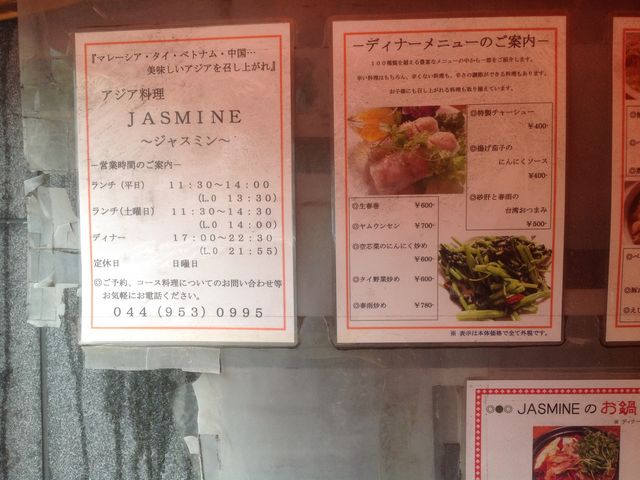 『マレーシア・タイ・ベトナム・中国…
美味しいアジアを召し上がれ』
アジア料理
JASMINE
～ジャスミン～
－営業時間のご案内－
ランチ（平日） 11：30～14：00
(L.O 13：30)
ランチ(土曜日) 11：30～14：30
(L.O 14：00)
ディナー 17：00～22：30
(L.O 21：55)
定休日 日曜日
◎ご予約、コース料理についてのお問い合わせ等
お気軽にお電話ください。
044（953）0995
－ディナーメニューのご案内－
100種類を超える豊富なメニューの中から一部をご紹介します。
辛い料理はもちろん、辛くない料理も、辛さの調節ができる料理もあります。
お子様にも召し上がれる料理も取り揃えています。
◎特製チャーシュー
￥400-
◎揚げ茄子の
にんにくソース
￥400-
◎砂肝と春雨の
台湾おつまみ
￥500-
◎生春巻 ￥600-
◎ヤムウンセン ￥700-
◎空芯菜のにんにく炒め
￥600-
◎タイ野菜炒め
￥600-
◎春雨炒め ￥780-
※ 表示は本体価格で全て外税です。
◎●◎ JASMINE の お鍋
※ ディナー